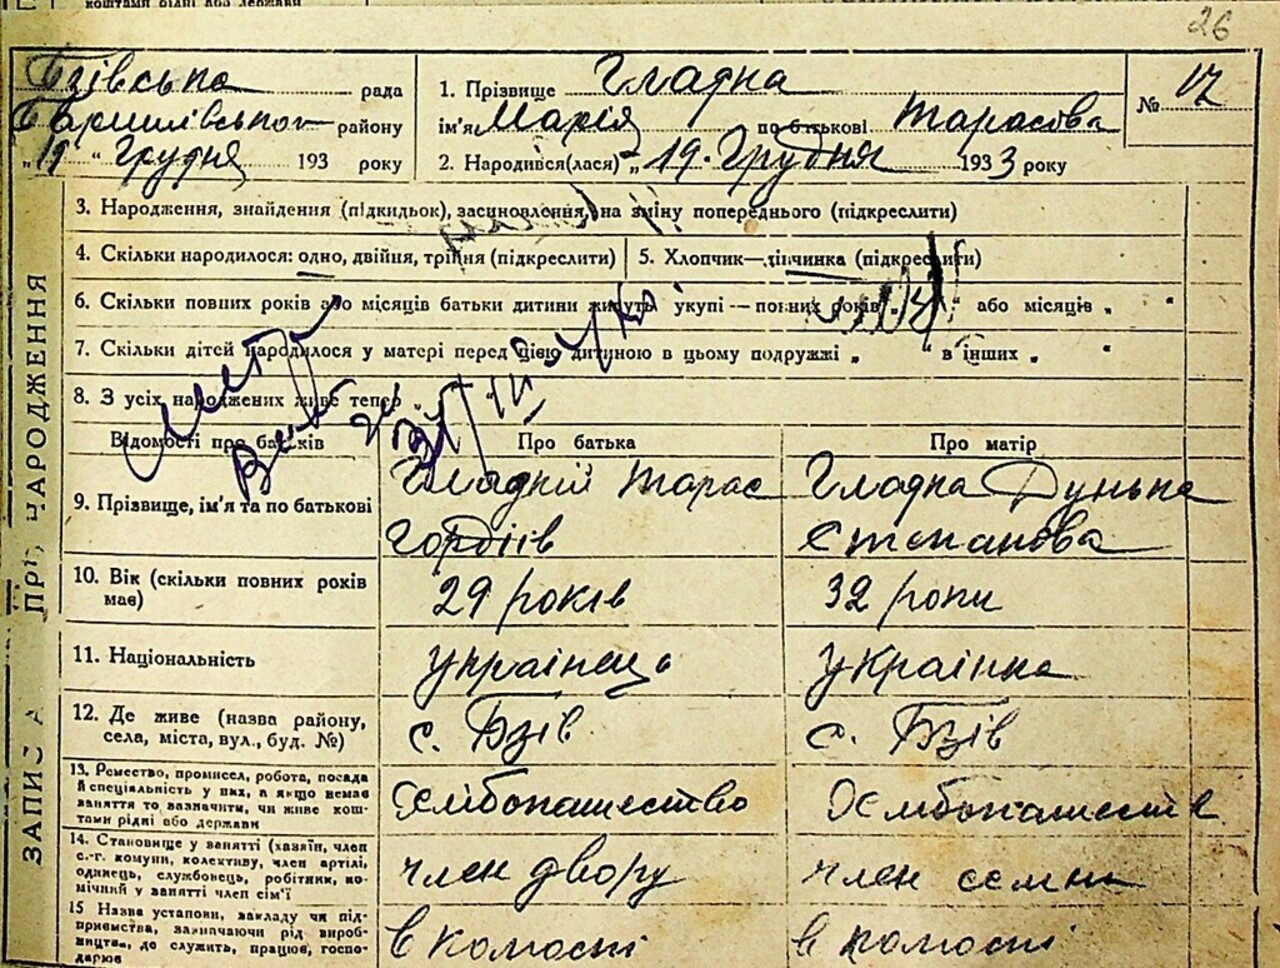 коштами рідні або держави
26
Бзівська рада
Баришівського району
"19" Грудня 193 року
1. Прізвище Гладка
ім'я Марія по батькові Тарасова
2. Народився(лася) „19. Грудня 1933 року
№ 17
ЗАПИС ПРО НАРОДЖЕННЯ
3. Народження, знайдення (підкидьок), засиновлення, на зміну попереднього (підкреслити)
4. Скільки народилося: одно, двійня, трійня (підкреслити)
5. Хлопчик—дівчинка (підкреслити)
6. Скільки повних років або місяців батьки дитини живуть укупі — повних років „ " або місяців „ "
7. Скільки дітей народилося у матері перед цією дитиною в цьому подружжі „ " в інших „ "
8. З усіх народжених живе тепер
Відомості про батьків
Про батька
Про матір
9. Прізвище, ім'я та по батькові
Гладкій Тарас
Гордіїв
Гладка Дунька
Степанова
10. Вік (скільки повних рохів має)
29 років
32 роки
11. Національність
українець
українка
12. Де живе (назва району, села, міста, вул., буд. №)
с. Бзів
с. Бзів
13. Ремество, промисел, робота, посада й спеціяльність у них, а якщо немає заняття то зазначити, чи живе коштами рідні або держави
14. Становище у занятті (хазяїн, член с.-г. комуни, колективу, член артілі, одинець, службовець, робітник, помічний у занятті член сім'ї
член двору
член семьи
15 Назва установи, закладу чи підприємства, зазначаючи рід виробництва, де служить, працює, господарює